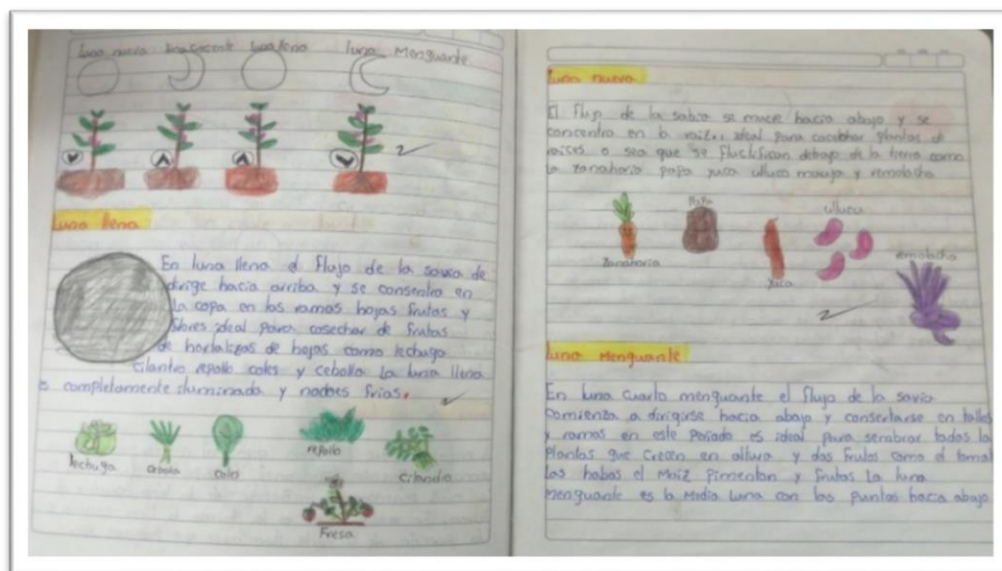 luna nueva luna creciente luna llena luna Menguante
luna llena
En luna llena el flujo de la savia de
dirige hacia arriba y se consentra en
la copa en las ramas hojas frutas y
flores ideal para cosechar de frutas
de hortalizas de hojas como lechuga
cilantro repollo coles y cebolla la luna llena
es completamente iluminada y nadaes frias.
lechuga
cebolla
Coles
repollo
Cilandro
Fresa
luna nueva
El flujo de la sabia se mueve hacia abajo y se
concentra en la raíz, ideal para cocechar plantas de
raices o sea que se fluctifican debajo de la tierra como
la zanahoria papa yuca ulluco mauja y remolacha
zanahoria
Papa
yuca
ulluco
remolacha
luna Menguante
En luna cuarto menguante el flujo de la savia
comienza a dirigirse hacia abajo y consertarse en tallos
y ramas en este periodo es ideal para sembrar todas la
plantas que crecen en altura y das frutos como el tomat
las habas el Maiz Pimenton y frutas La luna
Menguante es la Media luna con las puntas hacia abajo